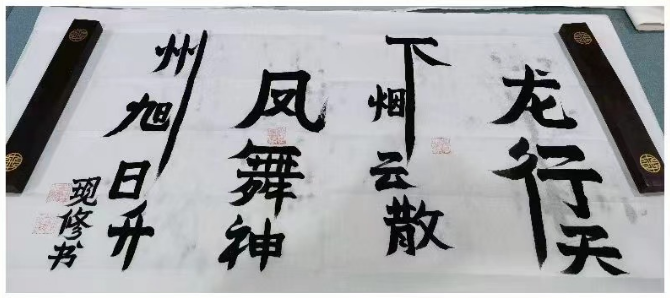 龙行天
下烟云散
凤舞神
州旭日升
现修书